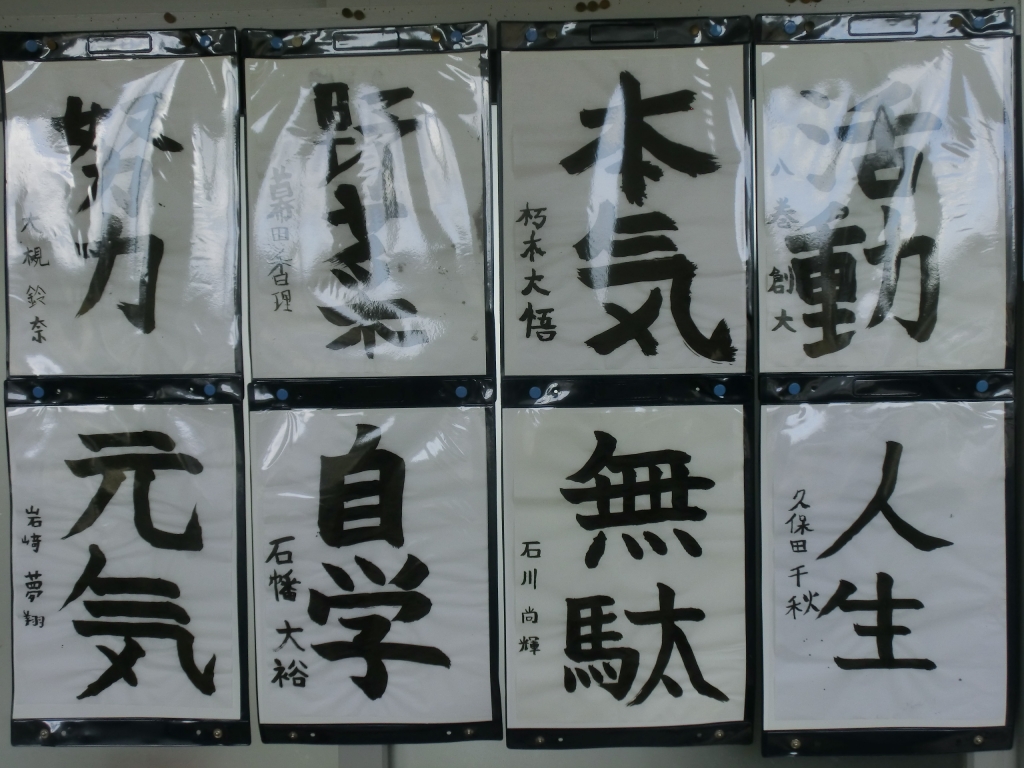 活動
八巻創大
本気
朽木大悟
野菜
努力
大槻 鈴奈
人生
久保田千秋
無駄
石川尚輝
自学
石幡大裕
元気
岩崎夢翔